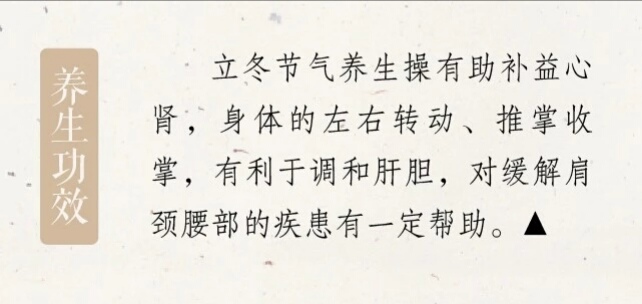 养生功效
立冬节气养生操有助补益心
肾，身体的左右转动、推掌收
掌，有利于调和肝胆，对缓解肩
颈腰部的疾患有一定帮助。▲